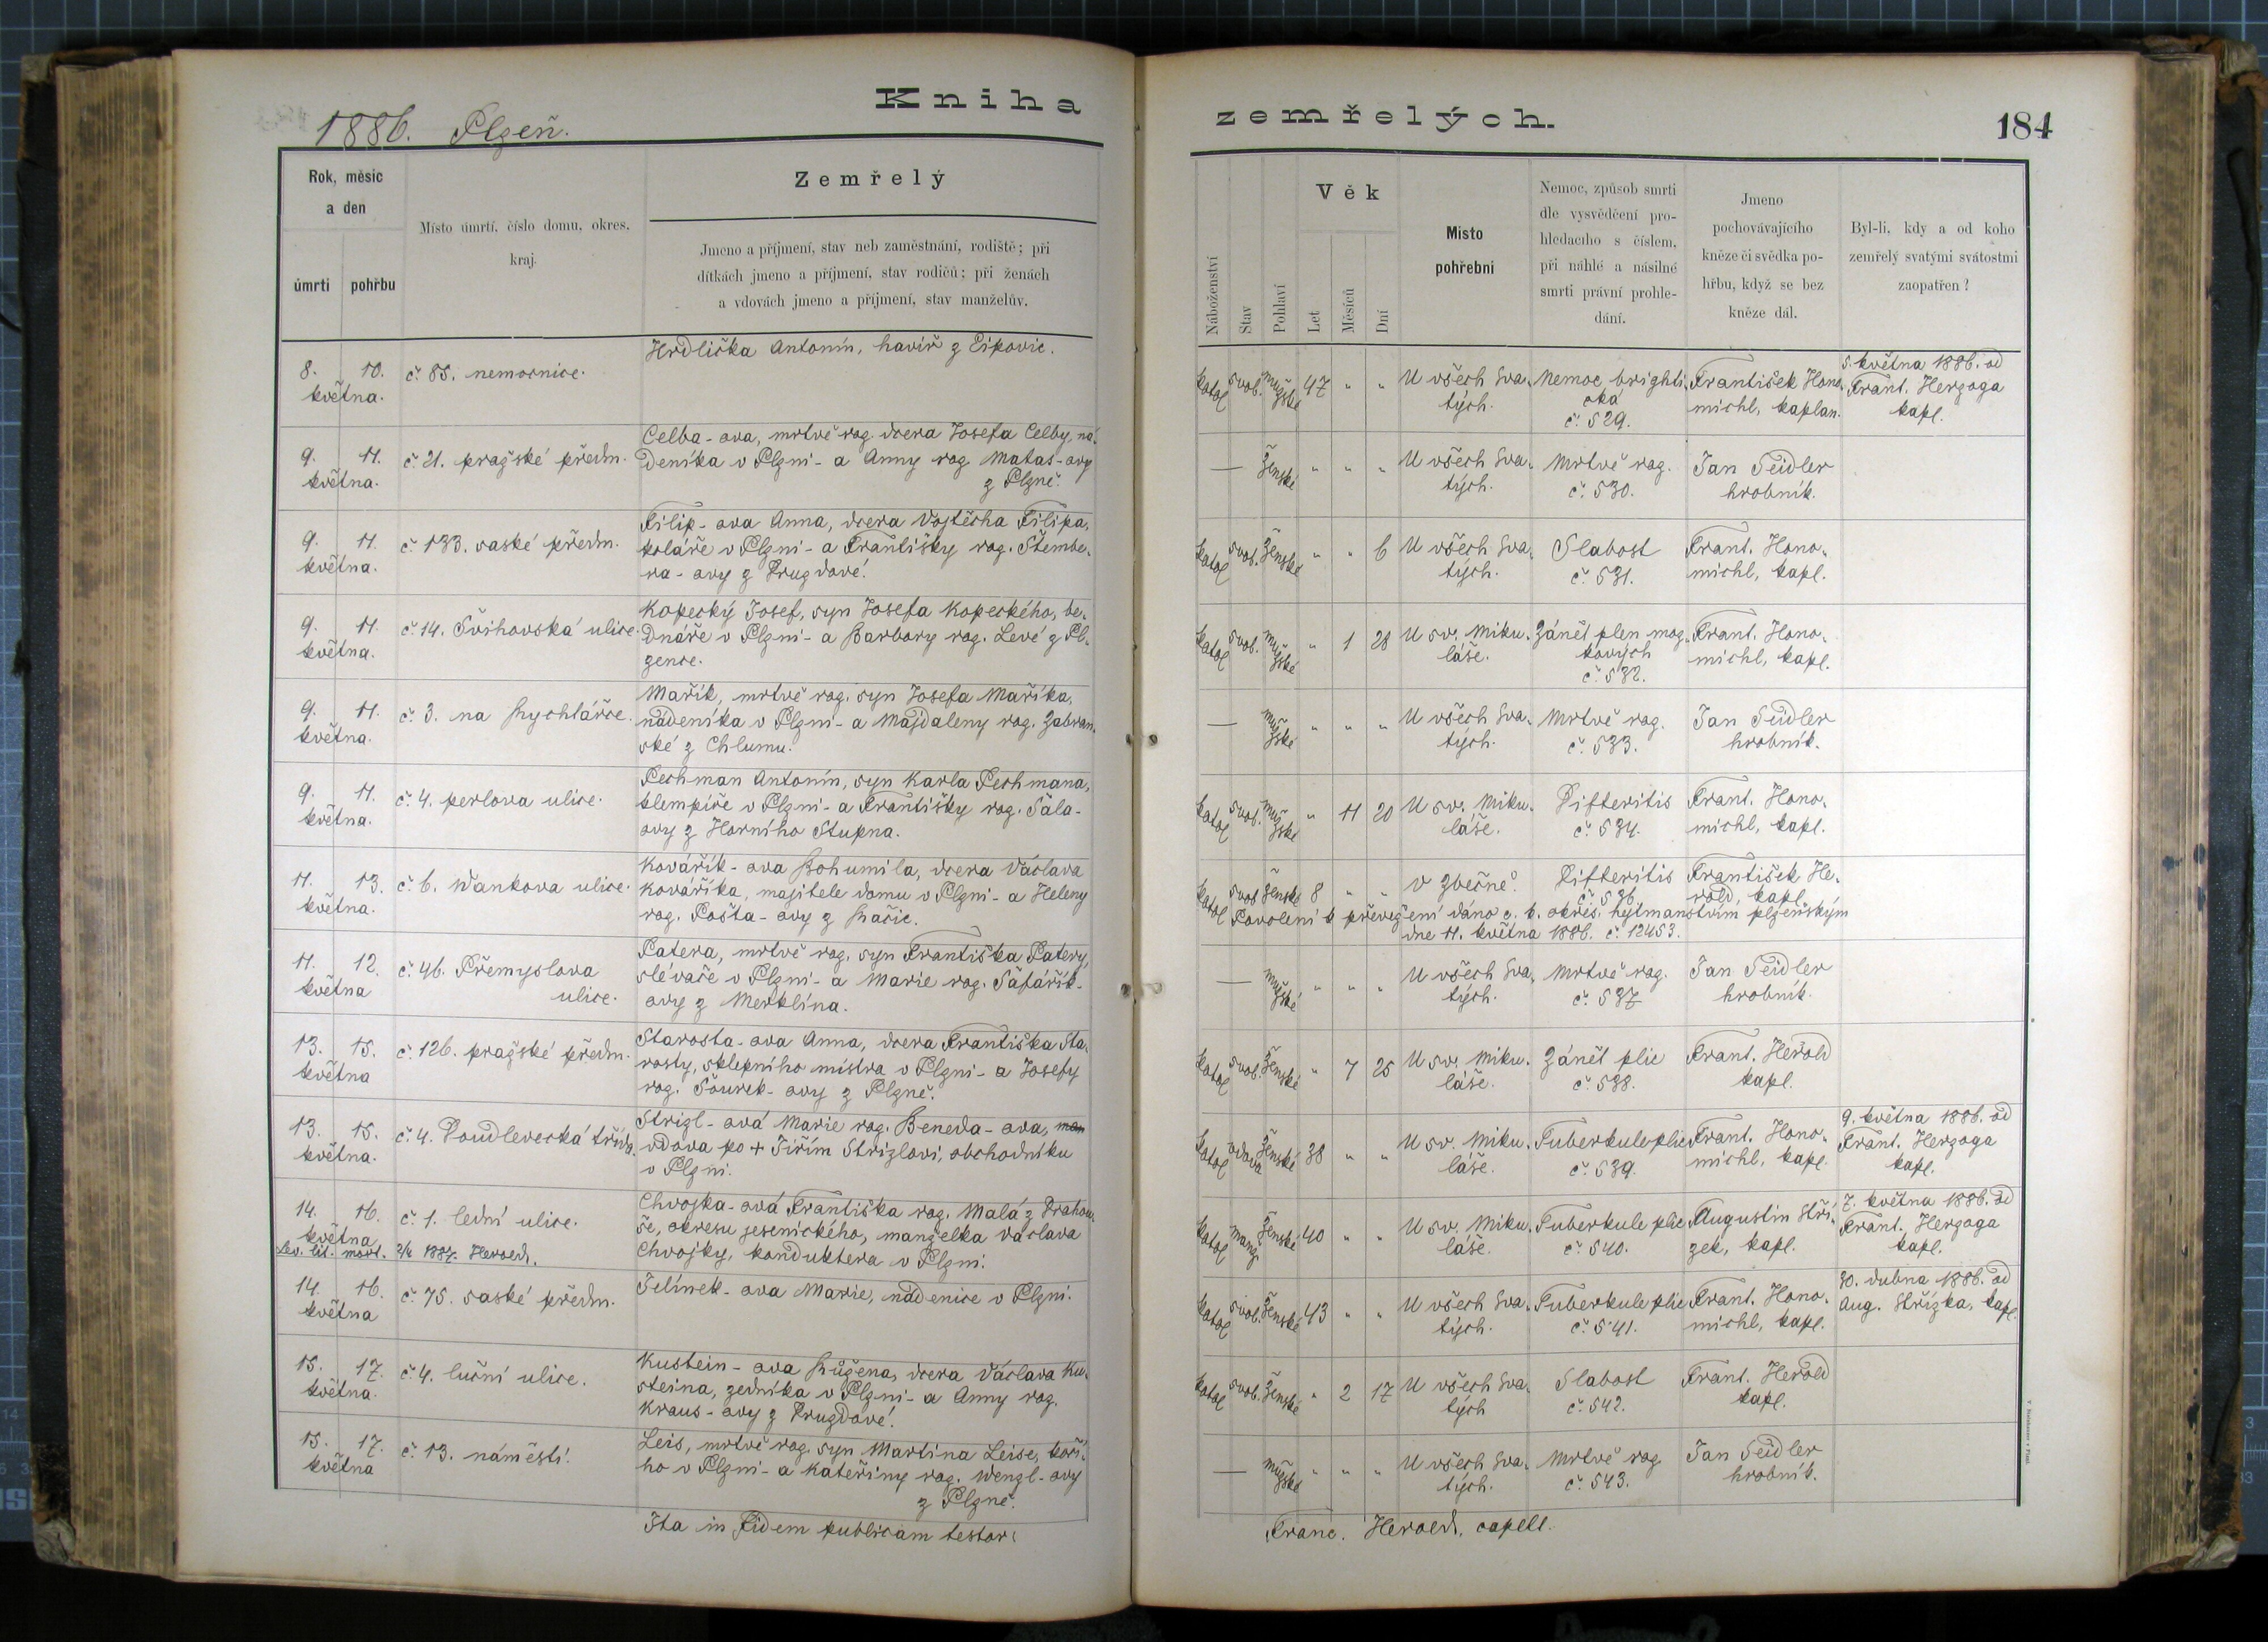 Kniha
1886. Plzeň.
Rok, měsíc
a den
úmrtí
pohřbu
Místo úmrtí, číslo domu, okres,
kraj.
Zemřelý
Jmeno a příjmení, stav neb zaměstnání, rodiště; při
dítkách jmeno a příjmení, stav rodičů; při ženách
a vdovách jmeno a příjmení, stav manželův.
8. 10.
května.
č. 85. nemocnice.
Hrdlička Antonín, havíř z Eipovic.
9. 11.
května.
č. 21. pražské předm.
Celba-ova, mrtvě roz. dcera Josefa Celby, ná-
deníka v Plzni - a Anny roz. Matas-ovy
z Plzně.
9. 11.
května.
č. 133. saské předm.
Filip-ova Anna, dcera Vojtěcha Filipa,
koláře v Plzni - a Františky roz. Štembe-
ra-ovy z Druzdové.
9. 11.
května.
č. 14. Švihovská ulice.
Kopecký Josef, syn Josefa Kopeckého, be-
dnáře v Plzni - a Barbory roz. Levé z Pl-
zence.
9. 11.
května.
č. 3. na Rychlářce.
Mařík, mrtvě roz. syn Josefa Maříka,
nádeníka v Plzni - a Majdaleny roz. Zabran-
ské z Chlumu.
9. 11.
května.
č. 4. perlova ulice.
Pechman Antonín, syn Karla Pechmana,
klempíře v Plzni - a Františky roz. Šala-
ovy z Horního Stupna.
11. 13.
května.
č. 6. Wankova ulice.
Kovářík-ova Bohumila, dcera Václava
Kováříka, majitele domu v Plzni - a Heleny
roz. Pošta-ovy z Račic.
11. 12.
května
č. 46. Přemyslova
ulice.
Patera, mrtvě roz. syn Františka Patery,
slévače v Plzni - a Marie roz. Šafářík-
ovy z Merklína.
13. 15.
května
č. 126. pražské předm.
Starosta-ova Anna, dcera Františka Sta-
rosty, sklepního mistra v Plzni - a Josefy
roz. Šourek-ovy z Plzně.
13. 15.
května.
č. 4. Doudlevecká třída.
Strizl-ová Marie roz. Beneda-ova, man
vdova po + Jiřím Strizlovi, obchodníku
v Plzni.
14. 16.
května
Lev. lit. mort. 2/6 1887. Heroed.
č. 1. lední ulice.
Chvojka-ová Františka roz. Malá z Drahou-
še, okresu jesenického, manželka Václava
Chvojky, konduktera v Plzni.
14. 16.
května
č. 75. saské předm.
Jelínek-ova Marie, nádenice v Plzni.
15. 17.
května.
č. 4. luční ulice.
Kustein-ova Růžena, dcera Václava Ku-
steina, zedníka v Plzni - a Anny roz.
Kraus-ovy z Druzdové.
15. 17.
května
č. 13. náměstí.
Leis, mrtvě roz. syn Martina Leise, koči-
ho v Plzni - a Kateřiny roz. Wengl-ovy
z Plzně.
Ita in Fidem publicam testor:
zemřelých.
184
Náboženství
Stav
Pohlaví
Věk
Let
Měsíců
Dní
Místo
pohřební
Nemoc, způsob smrti
dle vysvědčení pro-
hledacího s číslem,
při náhlé a násilné
smrti právní prohle-
dání.
Jmeno
pochovávajícího
kněze či svědka po-
hřbu, když se bez
kněze dál.
Byl-li, kdy a od koho
zemřelý svatými svátostmi
zaopatřen?
katol svob. mužské 47 " "
U všech Sva-
tých.
Nemoc brighti-
cká
č. 529.
František Hono-
michl, kaplan.
5. května 1886. od
Frant. Herzoga
kapl.
— ženské " " "
U všech Sva-
tých.
Mrtvě roz.
č. 530.
Jan Seidler
hrobník.
katol svob. ženské " " 6
U všech Sva-
tých.
Slabost
č. 531.
Frant. Hono-
michl, kapl.
katol svob. mužské " 1 28
U sv. Miku-
láše.
Zánět plen moz-
kových
č. 532.
Frant. Hono-
michl, kapl.
— mužské " " "
U všech Sva-
tých.
Mrtvě roz.
č. 533.
Jan Seidler
hrobník.
katol svob. mužské " 11 20
U sv. Miku-
láše.
Difteritis
č. 534.
Frant. Hono-
michl, kapl.
katol svob ženské 8 " "
V Zbečně.
Difteritis
č. 536.
František He-
rold, kapl.
Povolení k převezení dáno c. k. okres. hejtmanstvím plzeňským
dne 11. května 1886. č. 12453.
— mužské " " "
U všech Sva-
tých.
Mrtvě roz.
č. 537
Jan Seidler
hrobník.
katol svob. ženské " 7 25
U sv. Miku-
láše.
Zánět plic
č. 538.
Frant. Herold
kapl.
katol vdova ženské 38 " "
U sv. Miku-
láše.
Tuberkule plic
č. 539.
Frant. Hono-
michl, kapl.
9. května 1886. od
Frant. Herzoga
kapl.
katol manž ženské 40 " "
U sv. Miku-
láše.
Tuberkule plic
č. 540.
Augustin Stří-
zek, kapl.
7. května 1886. od
Frant. Herzoga
kapl.
katol svob. ženské 43 " "
U všech Sva-
tých.
Tuberkule plic
č. 541.
Frant. Hono-
michl, kapl.
30. dubna 1886. od
Aug. Střízka, kapl.
katol svob. ženské " 2 17
U všech Sva-
tých
Slabost
č. 542.
Frant. Herold
kapl.
— mužské " " "
U všech Sva-
tých.
Mrtvě roz
č. 543.
Jan Seidler
hrobník.
Franc. Heroed, capell.